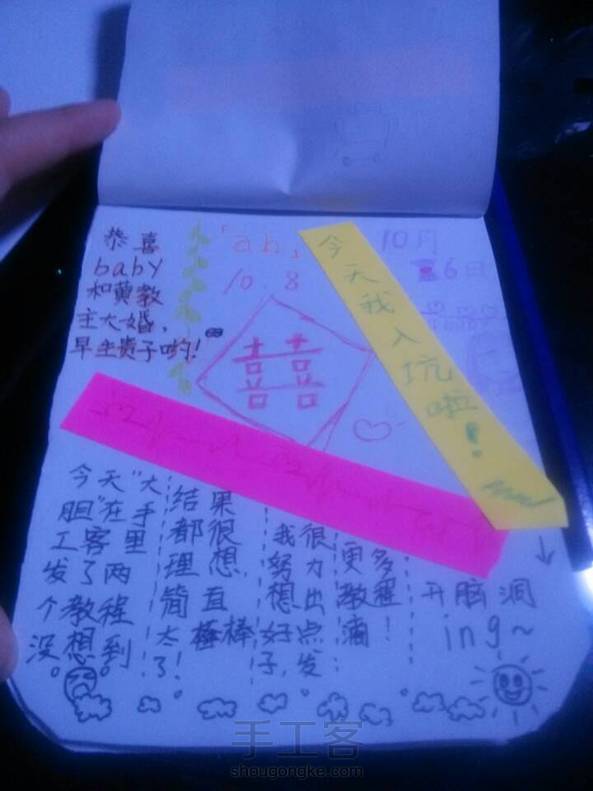 恭喜
baby
和黄教
主大婚，
早生贵子哟！
「ab」
10.8
囍
今天我入坑啦！
10月
6日
今天“大
胆”在手
工客里
发了两
个教程
没想到
。。。
结果
都很
理想，
简直
太棒棒
了！
我很
努力
想出
好点
子，发
更多
教程
滴！
开脑洞
ing～
手工客
shougongke.com